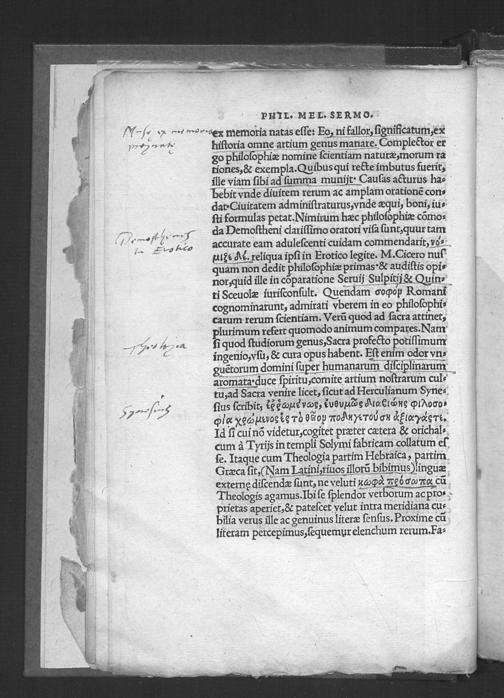 PHIL. MEL. SERMO.
ex memoria natas esse: Eo, ni fallor, significatum, ex
historia omne artium genus manare. Complector er
go philosophiæ nomine scientiam naturæ, morum ra
tiones, & exempla. Quibus qui recte imbutus fuerit,
ille viam sibi ad summa munijt. Causas acturus ha-
bebit vnde diuitem rerum ac amplam orationē con-
dat. Ciuitatem administraturus, vnde æqui, boni, iu-
sti formulas petat. Nimirum hæc philosophiæ cōmo
da Demostheni clarissimo oratori visa sunt, quur tam
accurate eam adulescenti cuidam commendarit, νό-
μιζε δὲ. reliqua ipsi in Erotico legite. M. Cicero nus
quam non dedit philosophiæ primas & audistis opi-
nor, quid ille in cōparatione Seruij Sulpitij & Quin-
ti Sceuolæ iurisconsult. Quendam σοφὸν Romani
cognominarunt, admirati vberem in eo philosophi
carum rerum scientiam. Verū quod ad sacra attinet,
plurimum refert quomodo animum compares. Nam
si quod studiorum genus, Sacra profecto potissimum
ingenio, vsu, & cura opus habent. Est enim odor vn-
guētorum domini super humanarum disciplinarum
aromata. duce spiritu, comite artium nostrarum cul-
tu, ad Sacra venire licet, sicut ad Herculianum Syne-
sius scribit, ἐρρωμένως, εὐθυμῶς διαβιώης φιλοσο-
φία χρώμενος ἐς τὸ θεῖον ποδηγετούσῃ ἀξιαγάστε.
Id si cui nō videtur, cogitet præter cætera & orichal-
cum à Tyrijs in templi Solymi fabricam collatum es
se. Itaque cum Theologia partim Hebraica, partim
Græca sit, (Nam Latini, riuos illorū bibimus) linguæ
externę discendæ sunt, ne veluti κωφὰ πρόσωπα cū
Theologis agamus. Ibi se splendor verborum ac pro-
prietas aperiet, & patescet velut intra meridiana cu-
bilia verus ille ac genuinus literæ sensus. Proxime cū
literam percepimus, sequemur elenchum rerum. Fa-
Demosthenis
in Erotico
Theologia
Synesius